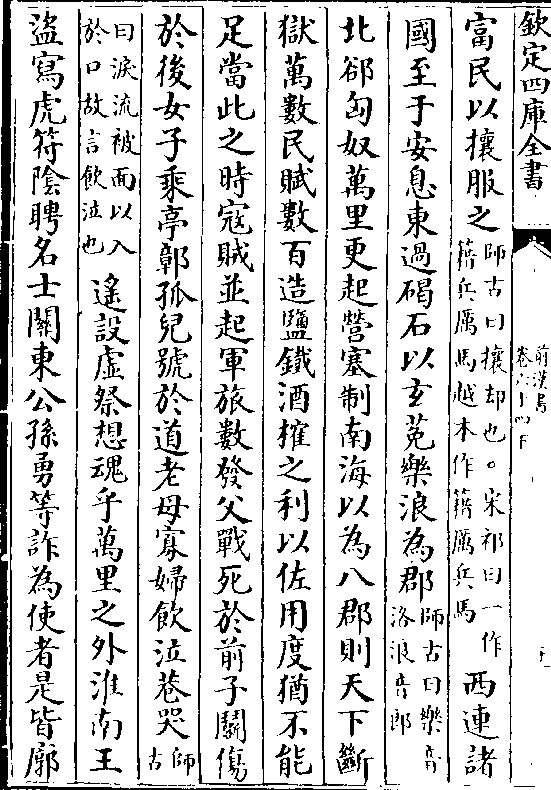 欽定四庫全書
前漢書
卷六十四下
富民以攘服之師古曰攘却也。宋祁曰一作
籍兵厲馬越本作籍厲兵馬西連諸
國至于安息東過碣石以玄菟樂浪為郡師古曰樂音
洛浪音郎
北郤匈奴萬里更起營塞制南海以為八郡則天下斷
獄萬數民賦數百造鹽鐵酒榷之利以佐用度猶不能
足當此之時寇賊並起軍旅數發父戰死於前子鬭傷
於後女子乘亭鄣孤兒號於道老母寡婦飲泣巷哭師古
曰淚流被面以入
於口故言飲泣也遙設虛祭想魂乎萬里之外淮南王
盜寫虎符陰聘名士關東公孫勇等詐為使者是皆廓